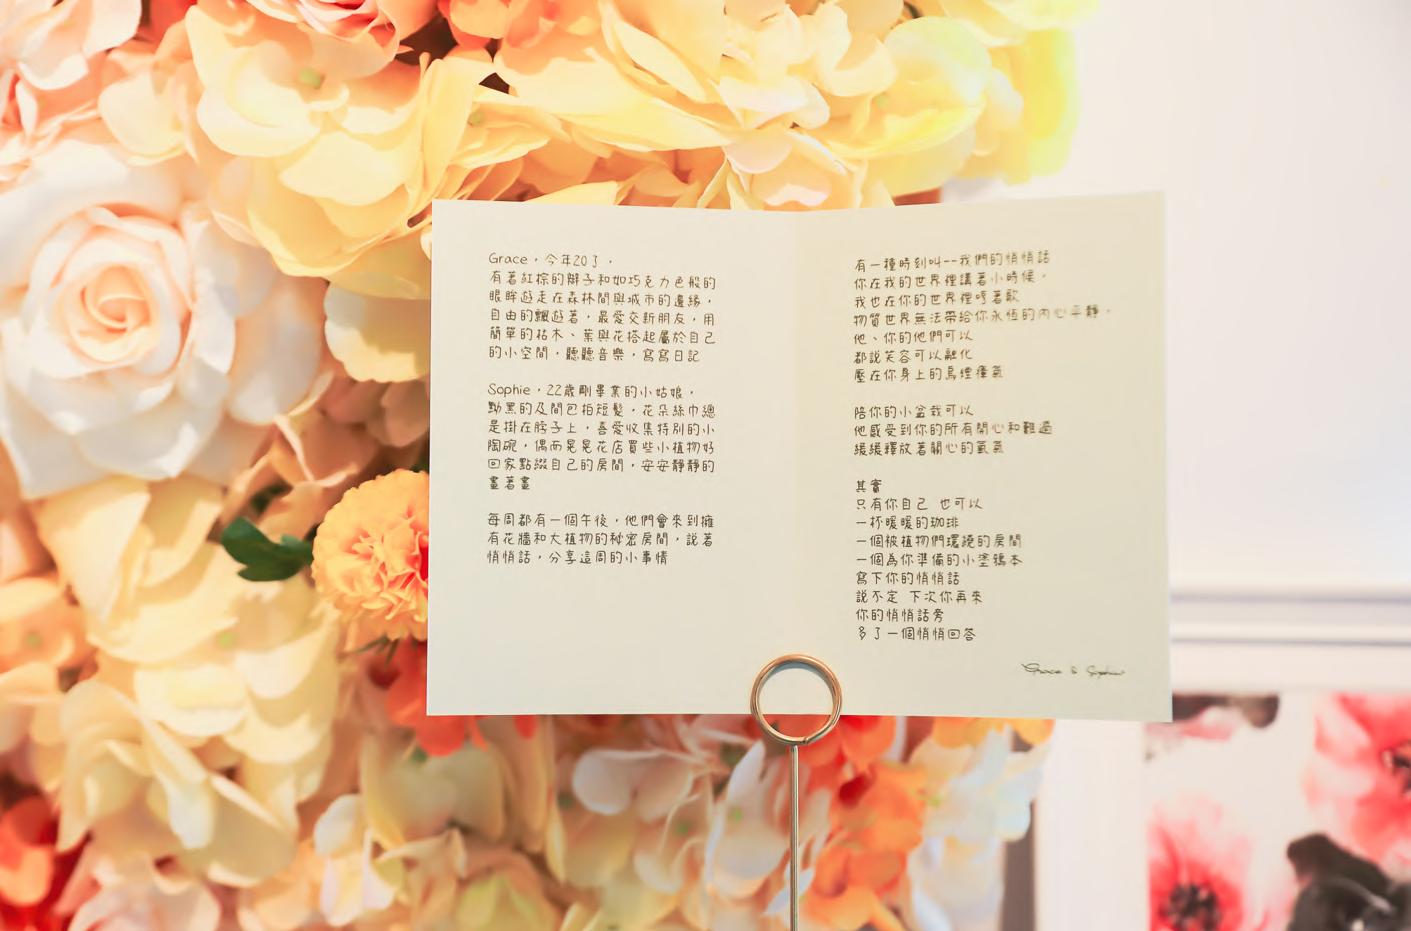 Grace，今年20了，
有著紅棕的辮子和如巧克力色般的
眼眸遊走在森林間與城市的邊緣，
自由的飄遊著，最愛交新朋友，用
簡單的枯木、葉與花搭起屬於自己
的小空間，聽聽音樂，寫寫日記
Sophie，22歲剛畢業的小姑娘，
黝黑的及間包柏短髮，花朵絲巾總
是掛在脖子上，喜愛收集特別的小
陶碗，偶而晃晃花店買些小植物好
回家點綴自己的房間，安安靜靜的
畫著畫
每周都有一個午後，他們會來到擁
有花牆和大植物的秘密房間，說著
悄悄話，分享這周的小事情
有一種時刻叫--我們的悄悄話
你在我的世界裡講著小時候，
我也在你的世界裡哼著歌
物質世界無法帶給你永恆的內心平靜，
他、你的他們可以
都說笑容可以融化
壓在你身上的烏煙瘴氣
陪你的小盆栽可以
他感受到你的所有開心和難過
緩緩釋放著關心的氧氣
其實
只有你自己 也可以
一杯暖暖的咖啡
一個被植物們環繞的房間
一個為你準備的小塗鴉本
寫下你的悄悄話
說不定 下次你再來
你的悄悄話旁
多了一個悄悄回答
Grace & Sophie